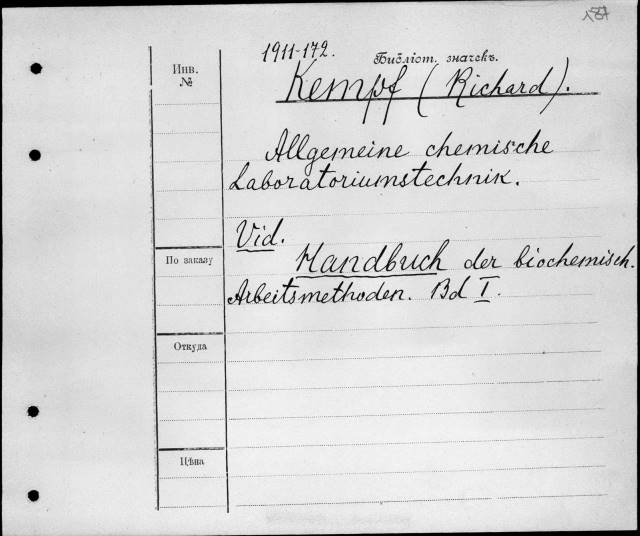 1911-172.
Инв.
№
Библіот. значекъ.
Kempf (Richard).
Allgemeine chemische
Laboratoriumstechnik.
Vid.
По заказу
Handbuch der biochemisch.
Arbeitsmethoden. Bd I.
Откуда
Цѣна